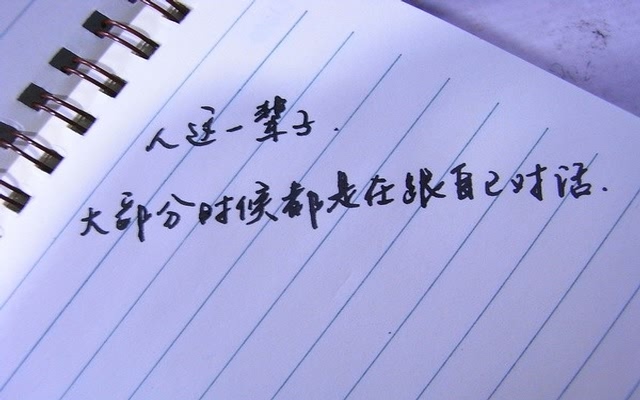 人这一辈子.
大部分时候都是在跟自己对话.